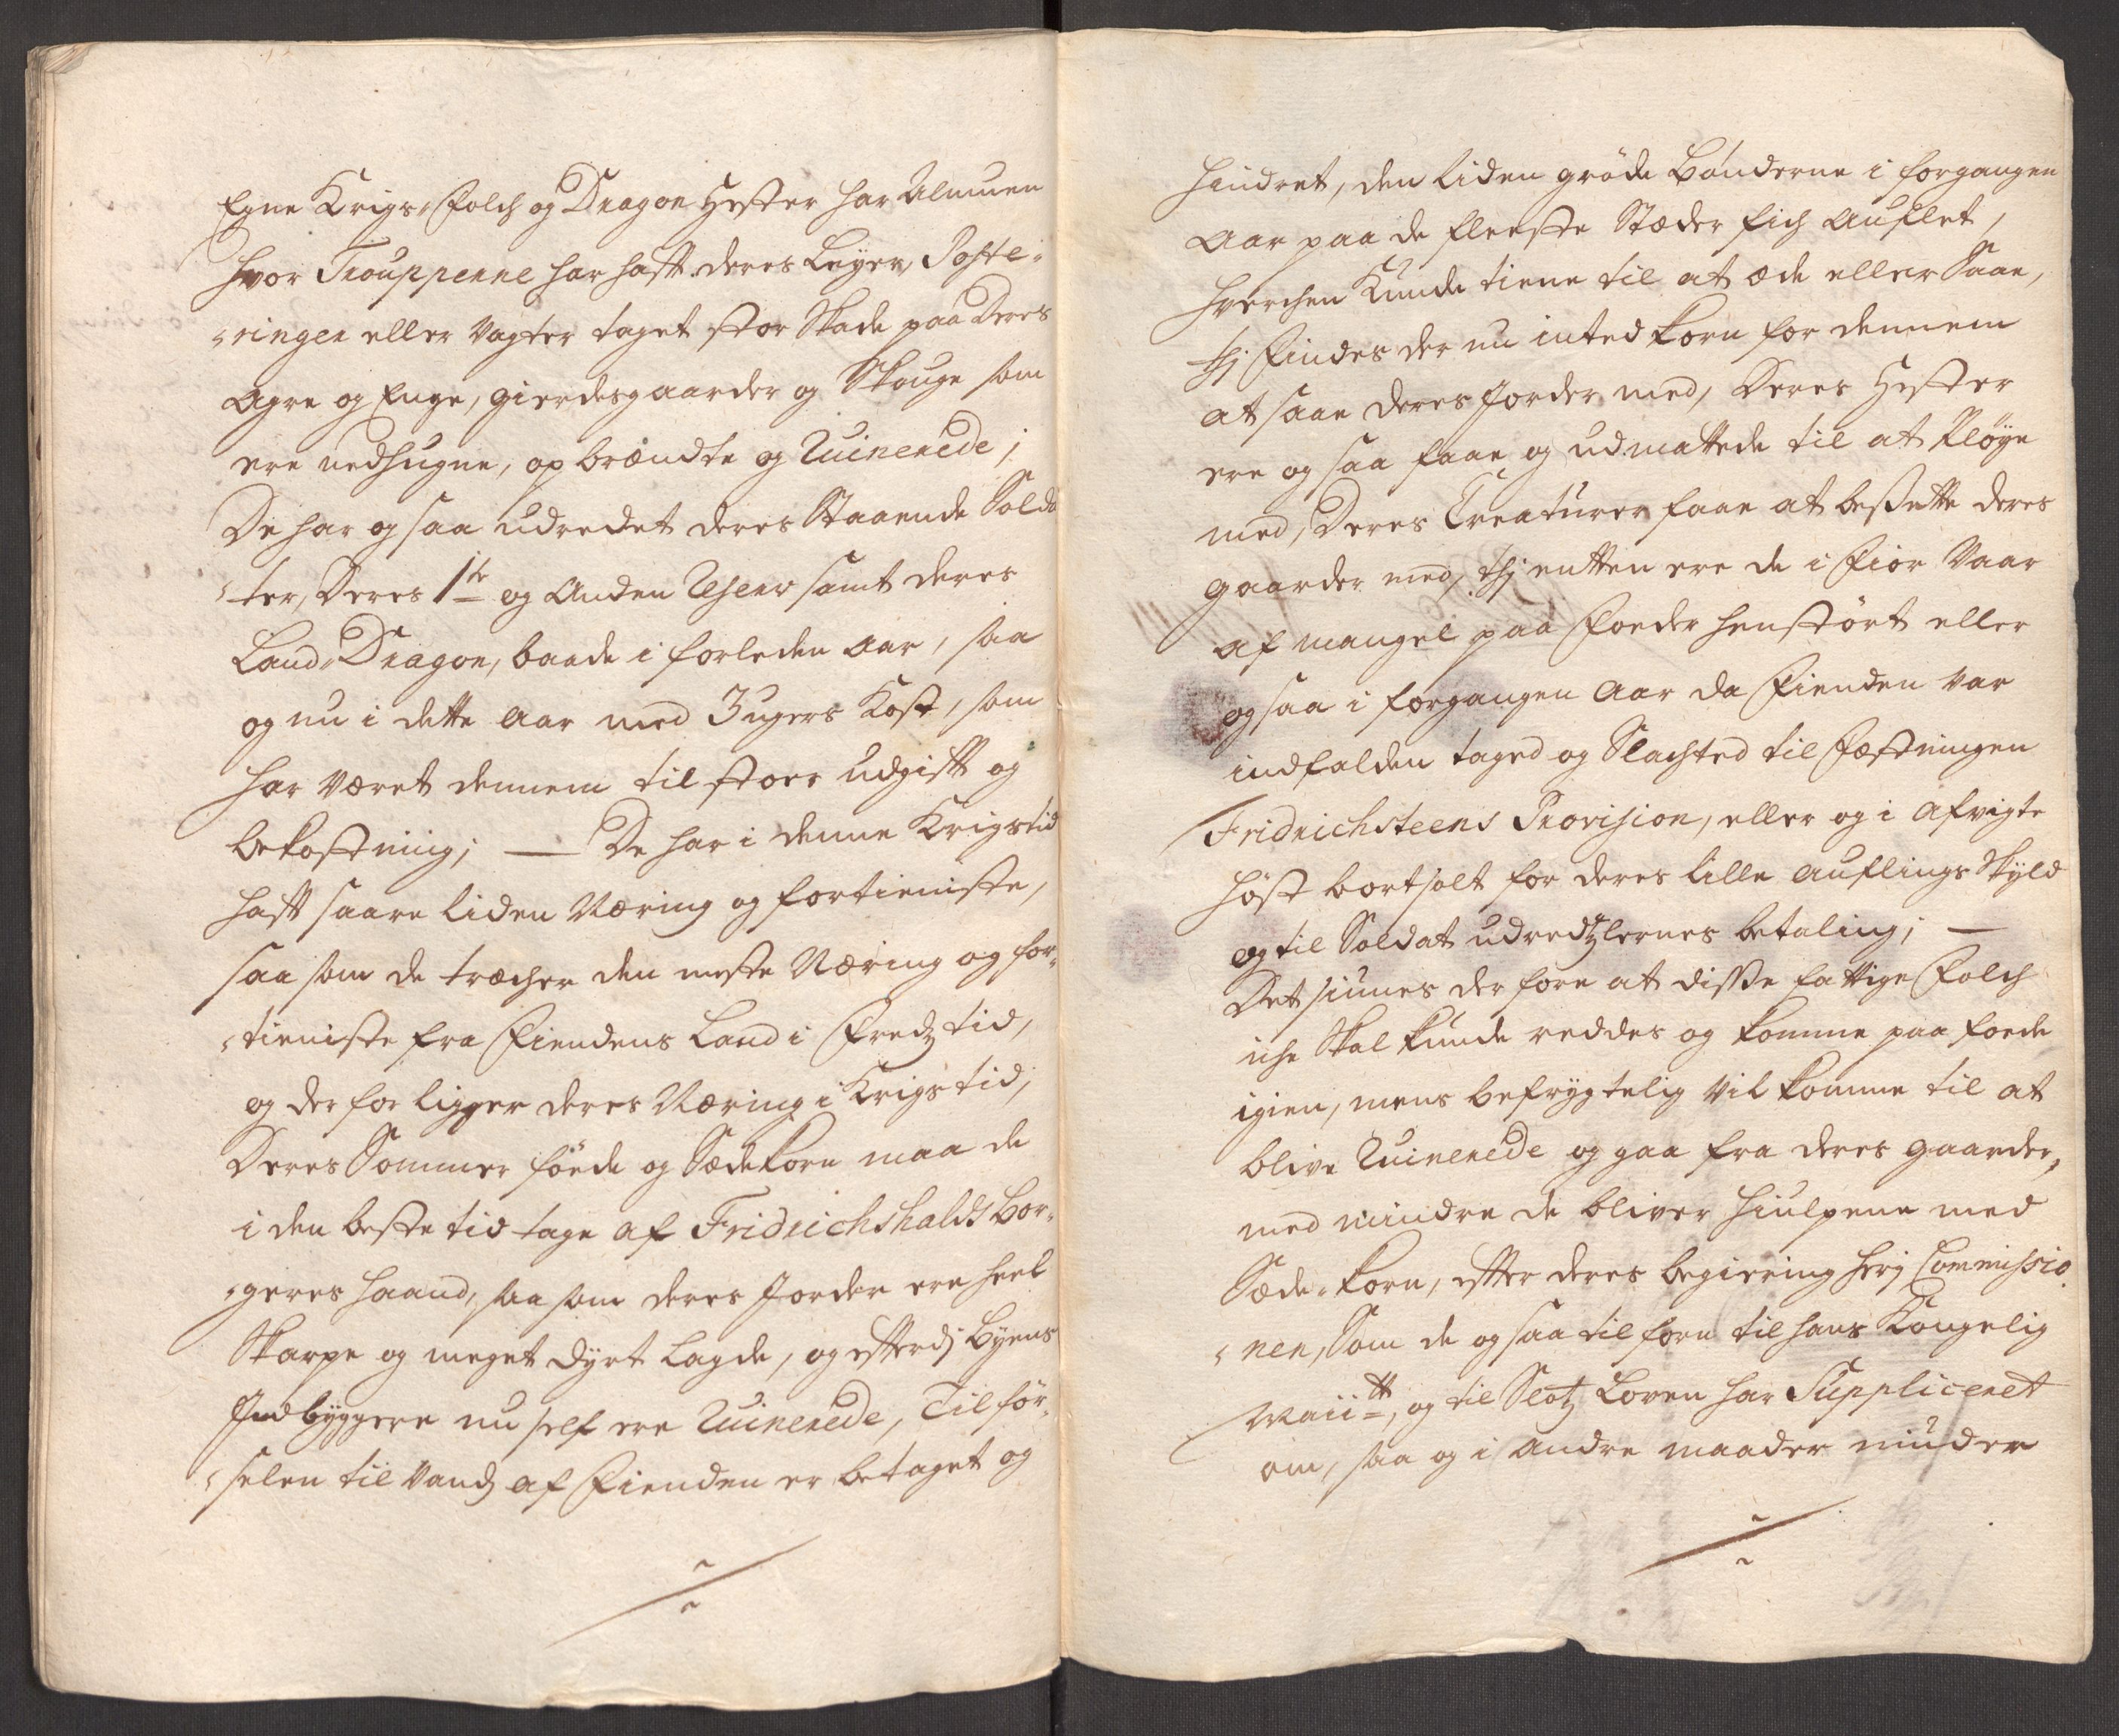 Egne Krigs-Folch og Dragon Hester har Almuen
hvor Trouppenne har hafft deres Leyer, Poste-
ringer eller Vagter taget stor Skade paa Deres
Agre og Enge, gierdesgaarder og Skouge som
ere nedhugne, opbrændte og Ruinerede;
De har og saa udredet deres Staaende Solda
ter, Deres 1te og Anden Reserv samt deres
Land-Dragon, baade i forleden Aar, saa
og nu i dette Aar med 3 ugers Kost, som
har Været dennem til stoer udgifft og
bekostning; — De har i denne Krigstid
hafft saare liden Næring og fortieniste,
saa som de træcher den meste Næring og for-
tieniste fra Fiendens Land i Fredz tid,
og der for ligger deres Næring i Krigs tid,
Deres Sommer föede og Sædekorn maa de
i den beste tid tage af Fridrichshalds bor-
geres haand, saa som deres Jorder ere heel
Skarpe og meget dyrt lagde, og efterdj Byens
Indbyggere nu self ere Ruinerede, Tilför-
selen til Vandz af Fienden er betaget og
hindret, den liden gröde bönderne i forgangen
Aar paa de fleeste Stæder fich Auflet,
hverchen Kunde tiene til at æde eller Saae,
thj Findes der nu inted korn for dennem
at saae deres Jorder med, Deres Hester
ere og saa faae og udmattede til at Pløye
med, Deres Creaturer faae at besette deres
gaarder med, thj entten ere de i Fior Vaar
af mangel paa Foeder henstört eller
og saa i forgangen Aar da Fienden var
indfalden taged og Slachted til Fæstningen
Fridrichsteens Provision, eller og i afvigte
höst bortsolt for deres lille auflings skyld
og til Soldat udredtzlernes betaling; —
Det siunes der fore at disse fattige Folch
iche Skal kunde reddes og komme paa foede
igien, mens befrygtelig vil komme til at
blive Ruinerede og gaa fra deres gaarder,
med mindre de bliver hiulpene med
Sæde-korn, effter deres begiering hos Commissio
nen, Som de og saa tilforn til hans Kongelig
Maiitt, og til Slotz Loven har Suppliceret
om, saa og i andre maader